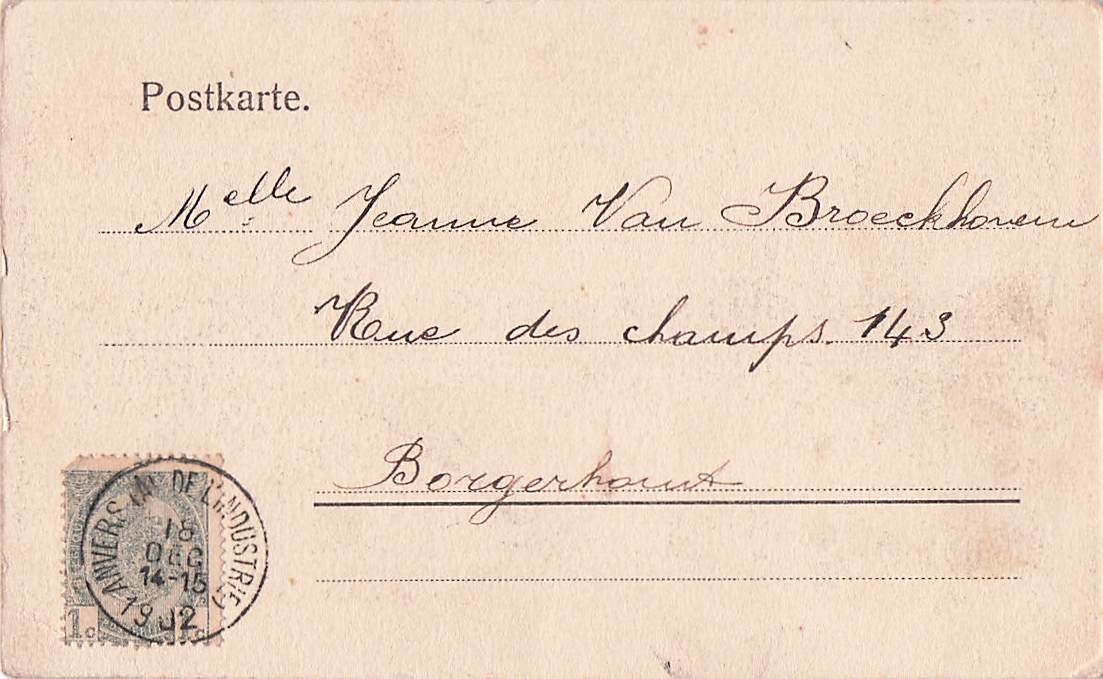 Postkarte.
Melle Jeanne Van Broeckhoven
Rue des champs. 143
Borgerhout
ANVERS (AV. DE L'INDUSTRIE)
18
DEC
14-15
1902
1c c